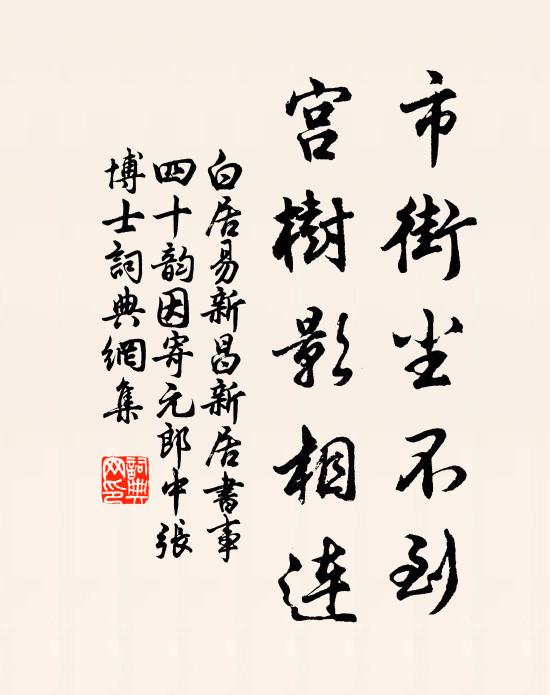 市街尘不到
宫樹影相連
白居易新昌新居書事
四十韵因寄元郎中張
博士詞典網集
詞典
网印